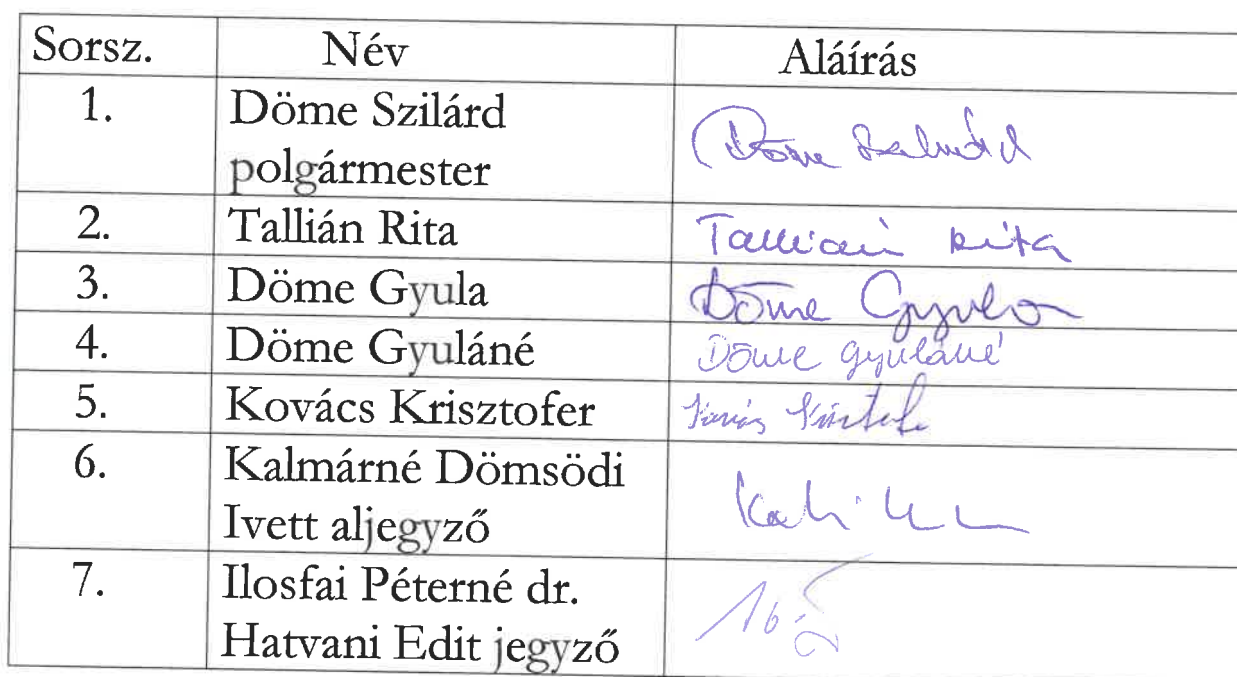 Sorsz. Név Aláírás
1. Döme Szilárd
polgármester
Döme Szilárd
2. Tallián Rita Tallián Rita
3. Döme Gyula Döme Gyula
4. Döme Gyuláné Döme Gyuláné
5. Kovács Krisztofer
6. Kalmárné Dömsödi
Ivett aljegyző
7. Ilosfai Péterné dr.
Hatvani Edit jegyző